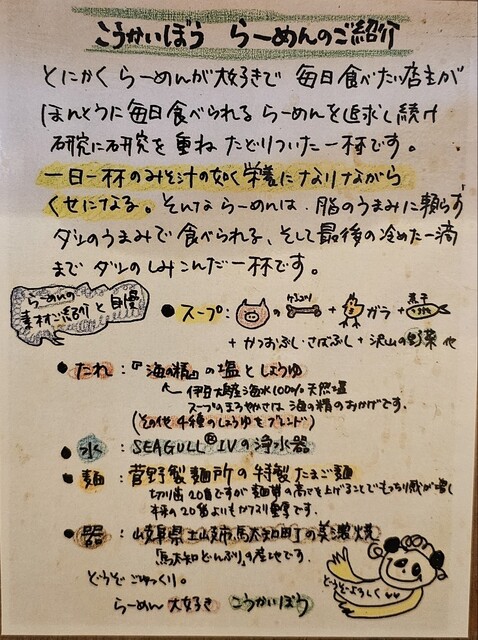 こうかいぼう らーめんのご紹介
とにかく らーめんが大好きで 毎日食べたい店主が
ほんとうに毎日食べられる らーめんを追求し続け
研究に研究を重ね たどりついた一杯です。
一日一杯のみそ汁の如く栄養になりながら
くせになる。そんな らーめんは、脂のうまみに頼らず
ダシのうまみで食べられる、そして最後の冷めた一滴
まで ダシのしみこんだ一杯です。
らーめんの
素材ご紹介と自慢
●スープ: の ゲンコツ + ガラ + 煮干
+かつおぶし・さばぶし+沢山の野菜 他
●たれ:『海の精』の塩としょうゆ
伊豆大島産海水100% 天然塩
スープのまろやかさは 海の精のおかげです。
(その他 4種のしょうゆをブレンド)
●水:SEAGULL®IVの浄水器
●麺:菅野製麺所の特製たまご麺
切り歯20番ですが麺帯の高さを上げることでもっちり感が増し
本来の20番よりもかなり重厚です。
●器:岐阜県土岐市馬太知町の美濃焼
「馬太知どんぶり」の産地です。
どうぞごゆっくり。
らーめん 大好き こうかいぼう
どうぞよろしく